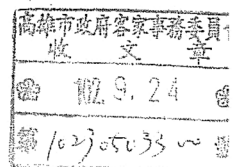 高雄市政府客家事務委員
收文章
102.9.24
第1023050300